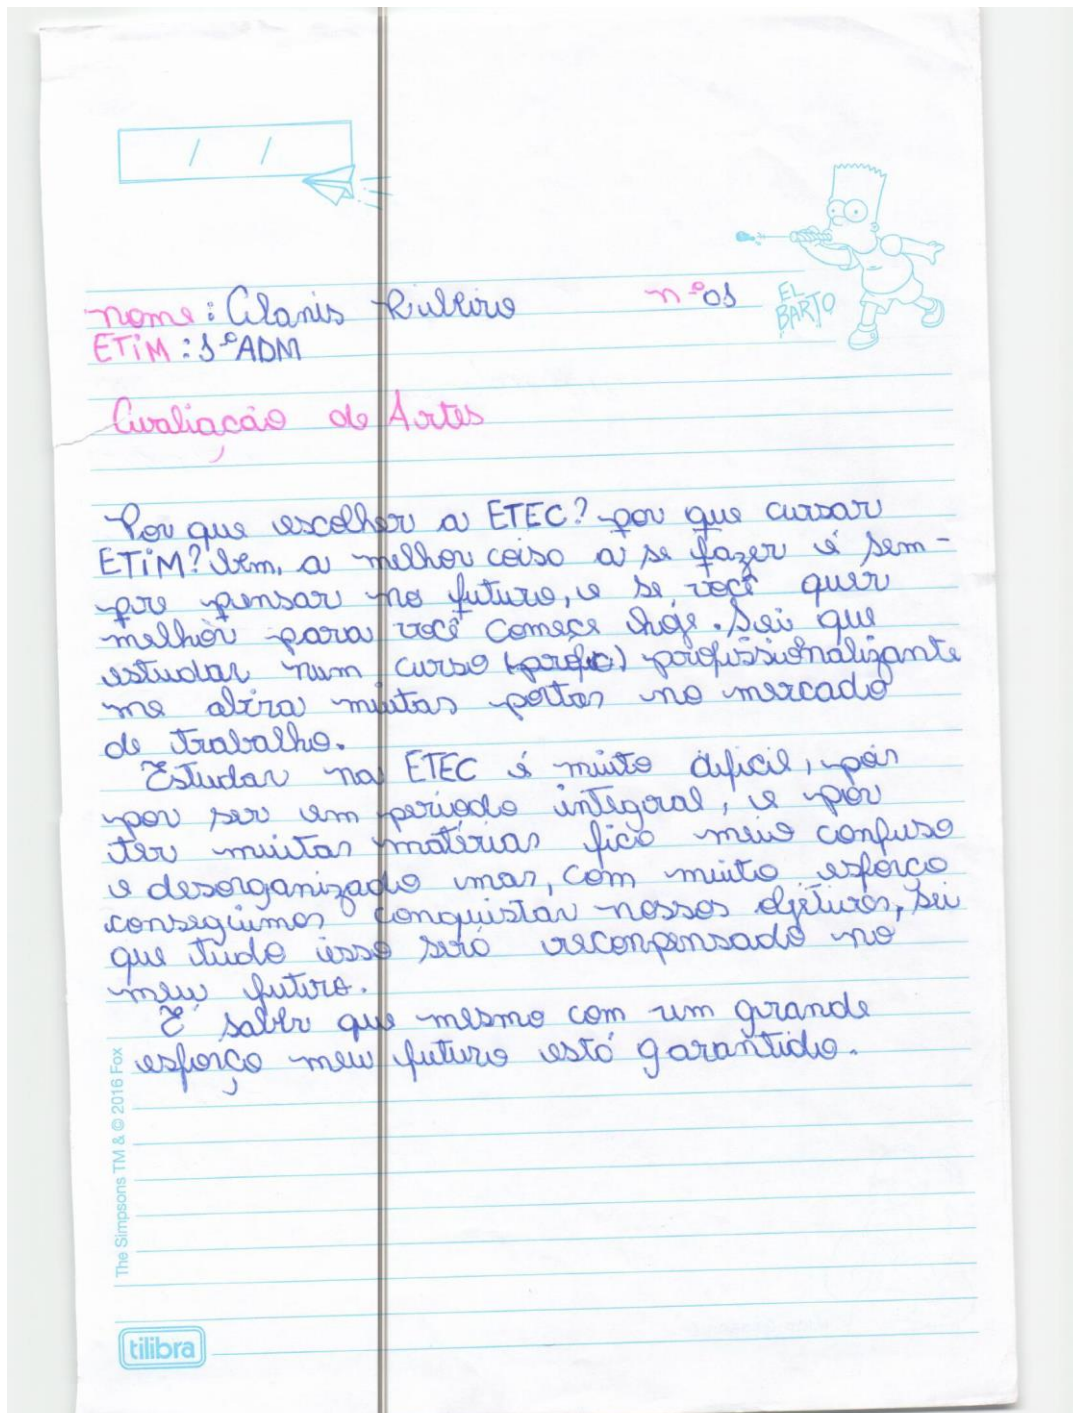 / /
nome: Alanis Ribeiro nº 01
EL BARTO
ETiM: 1º ADM
Avaliação de Artes
Por que escolher a ETEC? por que cursar
ETiM? bem, a melhor coisa a se fazer é sem-
pre pensar no futuro, e se você quer
melhor para você começe hoje. Sei que
estudar num curso (profic) profissionalizante
me abrira muitas portas no mercado
de trabalho.
Estudar na ETEC é muito dificil, pois
por ser em periodo integral, e por
ter muitas matérias fico meio confuso
e desorganizado mas, com muito esforço
conseguimos conquistar nossos objetivos, sei
que tudo isso será reconpensado no
meu futuro.
É saber que mesmo com um grande
esforço meu futuro está garantido.
The Simpsons TM & © 2016 Fox
tilibra